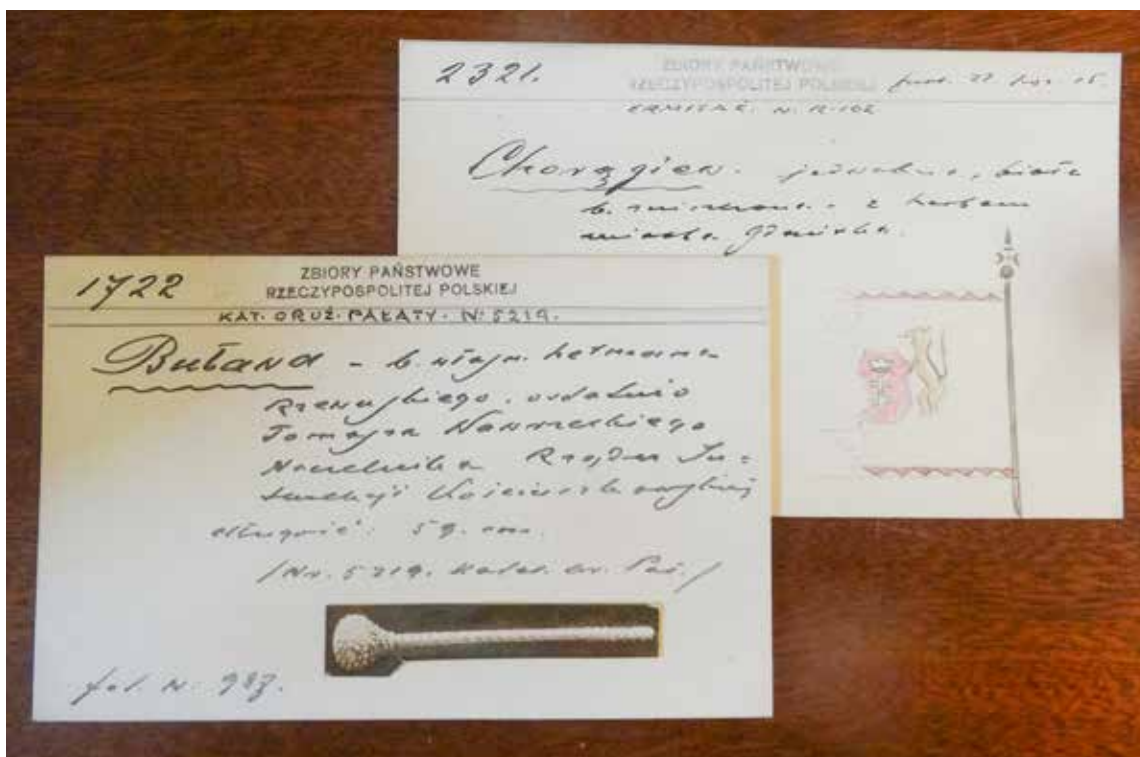 2321.
ZBIORY PAŃSTWOWE
RZECZYPOSPOLITEJ POLSKIEJ
ERMITAŻ. N. R-102
Chorągiew. jedwabna, biała
z herbem
miasta Gdańska.
1722
ZBIORY PAŃSTWOWE
RZECZYPOSPOLITEJ POLSKIEJ
KAT. ORUŻ. PAŁATY. N: 5219.
Buława - b. własn. hetmana
Rzewuskiego. ostatnio
Tomasza Wawrzeckiego
Naczelnika
Kościuszkowskiej
długość: 59. cm.
/Nr. 5219. Katal. Or. Pał./
fot. N. 987.